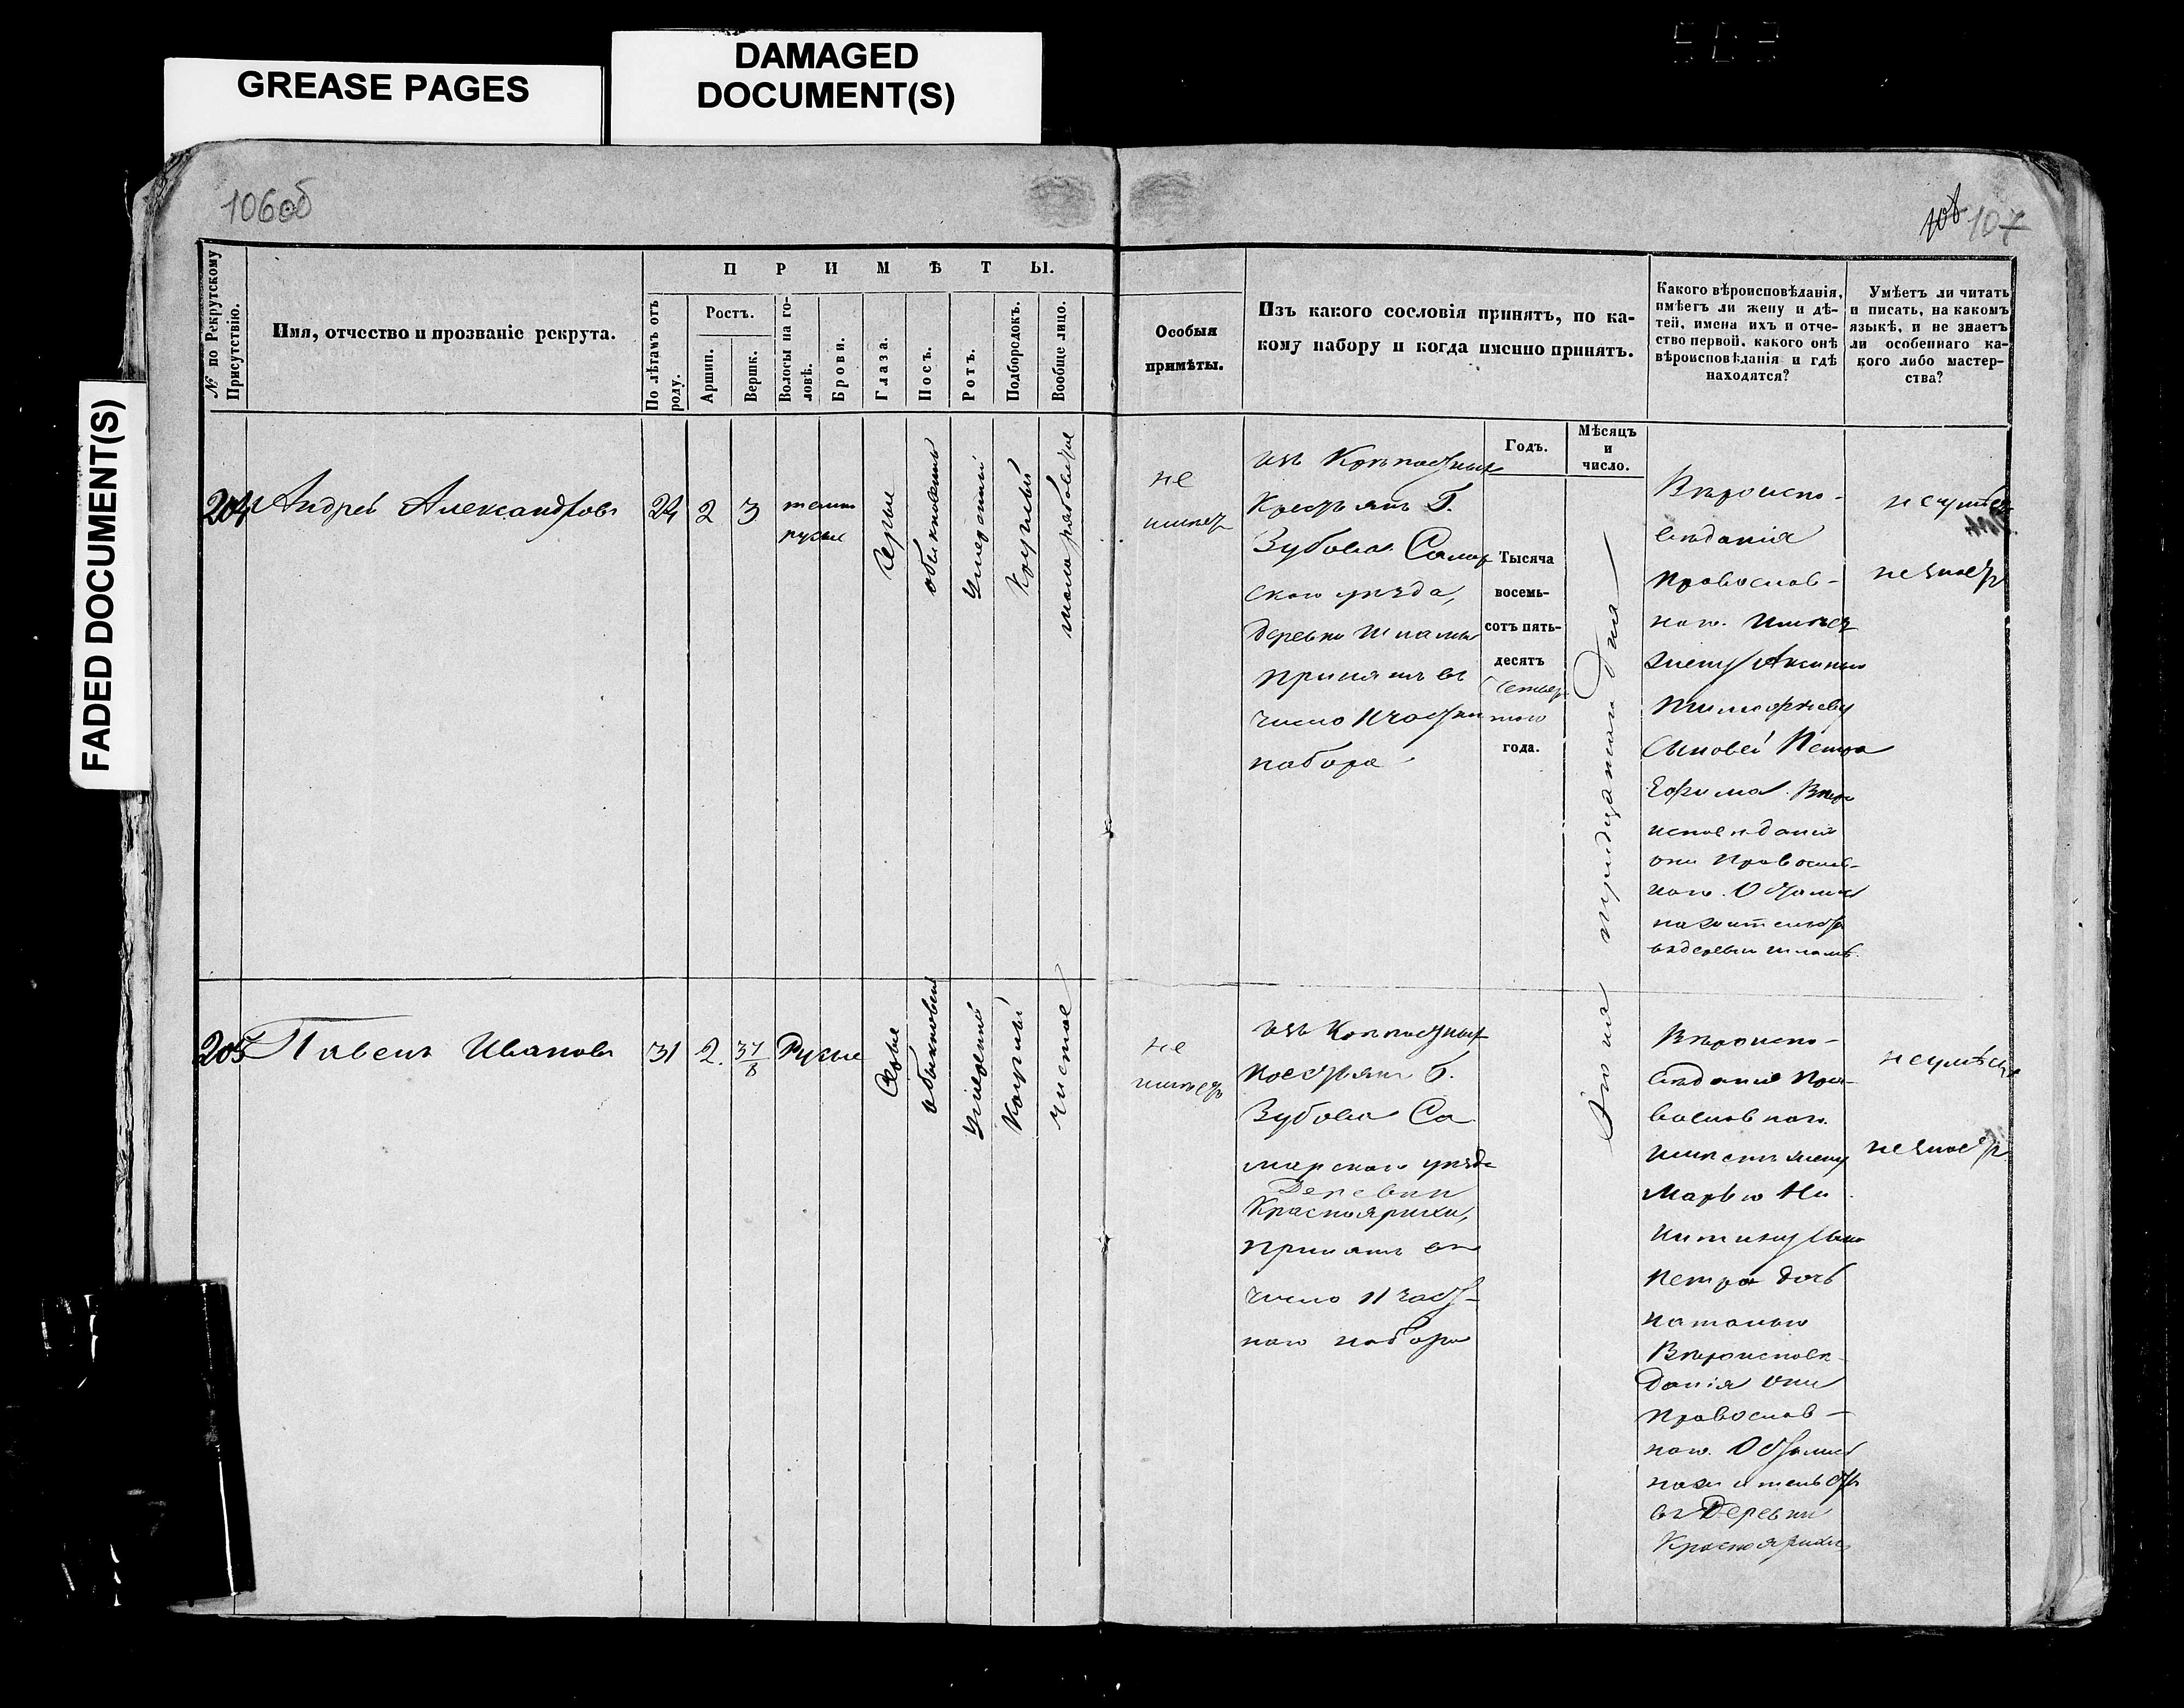 GREASE PAGES
DAMAGED
DOCUMENT(S)
FADED DOCUMENT(S)
106об
107
№ по Рекрутскому
Присутствію.
Имя, отчество и прозваніе рекрута.
ПРИМѢТЫ.
По лѣтамъ отъ
роду.
Ростъ.
Аршин.
Вершк.
Волосы на го-
ловѣ.
Брови.
Глаза.
Носъ.
Ротъ.
Подбородокъ.
Вообще лицо.
Особыя
примѣты.
Изъ какого сословія принятъ, по ка-
кому набору и когда именно принятъ.
Какого вѣроисповѣданія,
имѣетъ ли жену и дѣ-
тей, имена ихъ и отче-
ство первой, какого онѣ
вѣроисповѣданія и гдѣ
находятся?
Умѣетъ ли читать
и писать, на какомъ
языкѣ, и не знаетъ
ли особеннаго ка-
кого либо мастер-
ства?
Годъ.
Мѣсяцъ
и
число.
204
Андрей Александровъ
24
2
3
темно
русые
Серые
обыкновенъ
умеренный
Круглый
не
имеетъ
Крестьянъ Г.
Зубова Самар
скаго уѣзда,
деревни
принятъ въ
число 11 частн
набора
Тысяча
восемь-
сотъ пять-
десятъ
четвер
таго
года.
Іюня тридцатаго дня
Вѣроиспо-
вѣданія
православ-
наго. Имѣетъ
жену Аксинью
Тимофѣеву
Сыновей Петра
Ефима. Вѣро
исповѣданія
они православ-
наго.
въ деревни
неумѣетъ
незнаетъ
205
Павелъ Ивановъ
31
2.
3 7/8
Русые
Серые
обыкновен
умеренный
Круглый
чистое
не
имѣетъ
крестьянъ Г.
Зубова Са
марскаго уѣзда
Деревни
Красноярихи,
принятъ въ
число 11 част-
наго набора
Вѣроиспо-
вѣданія Пра-
вославнаго.
имѣетъ жену
Марью Ни
китину сына
Петра дочь
Наталью
Вѣроисповѣ-
данія они
православ-
наго.
въ Деревни
Красноярихи
неумѣетъ
незнаетъ